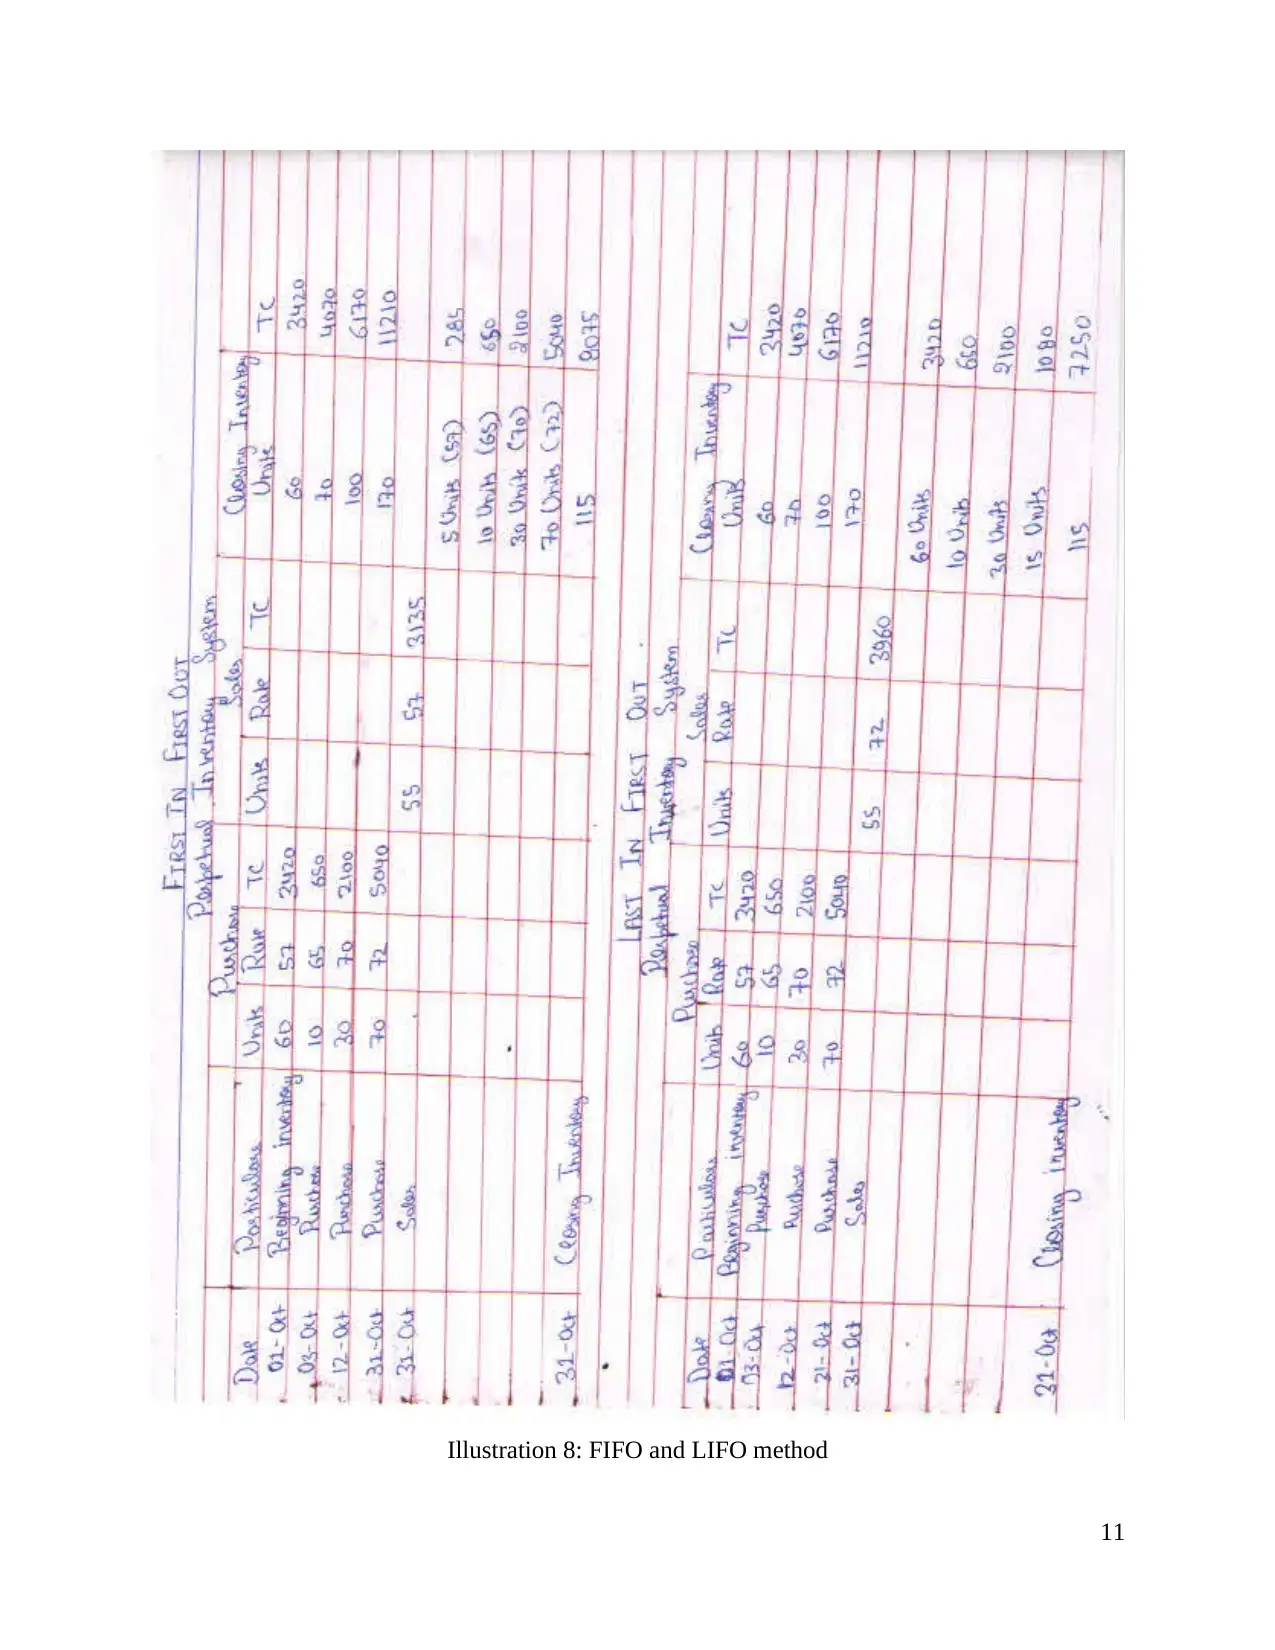 FIRST IN FIRST OUT
Perpetual Inventory System
Purchase Sales Closing Inventory
Date Particulars Units Rate TC Units Rate TC Units TC
01-Oct Beginning inventory 60 57 3420 60 3420
03-Oct Purchase 10 65 650 70 4070
12-Oct Purchase 30 70 2100 100 6170
31-Oct Purchase 70 72 5040 170 11210
31-Oct Sales 55 57 3135
5 Units (57) 285
10 Units (65) 650
30 Units (70) 2100
70 Units (72) 5040
31-Oct Closing Inventory 115 8075
LAST IN FIRST OUT
Perpetual Inventory System
Purchase Sales Closing Inventory
Date Particulars Unit Rate TC Units Rate TC Unit TC
01-Oct Beginning inventory 60 57 3420 60 3420
03-Oct Purchase 10 65 650 70 4070
12-Oct Purchase 30 70 2100 100 6170
31-Oct Purchase 70 72 5040 170 11210
31-Oct Sales 55 72 3960
60 Units 3420
10 Units 650
30 Units 2100
15 Units 1080
31-Oct Closing inventory 115 7250
Illustration 8: FIFO and LIFO method
11